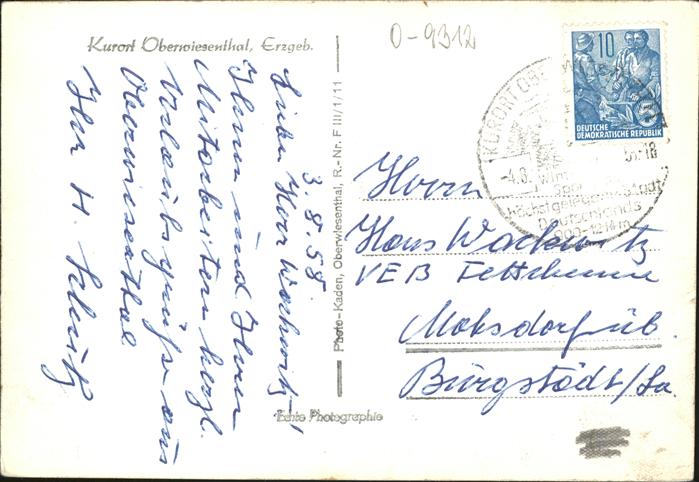 Kurort Oberwiesenthal, Erzgeb.
O-9312
3.8.58.
Lieber Herr Wackwitz!
Ihnen und Ihren
Mitarbeitern herzl.
Urlaubsgrüße aus
Oberwiesenthal
Ihr H.
Photo-Kaden, Oberwiesenthal, R.-Nr. F III/1/11
Echte Photographie
10
DEUTSCHE
DEMOKRATISCHE REPUBLIK
KURORT OBERWIESENTHAL
-4.8. -18
höchstgelegene Stadt
Deutschlands
900-1214m
Herrn
Hans Wackwitz
VEB Fettchemie
Mohsdorf üb.
Burgstädt/Sa.